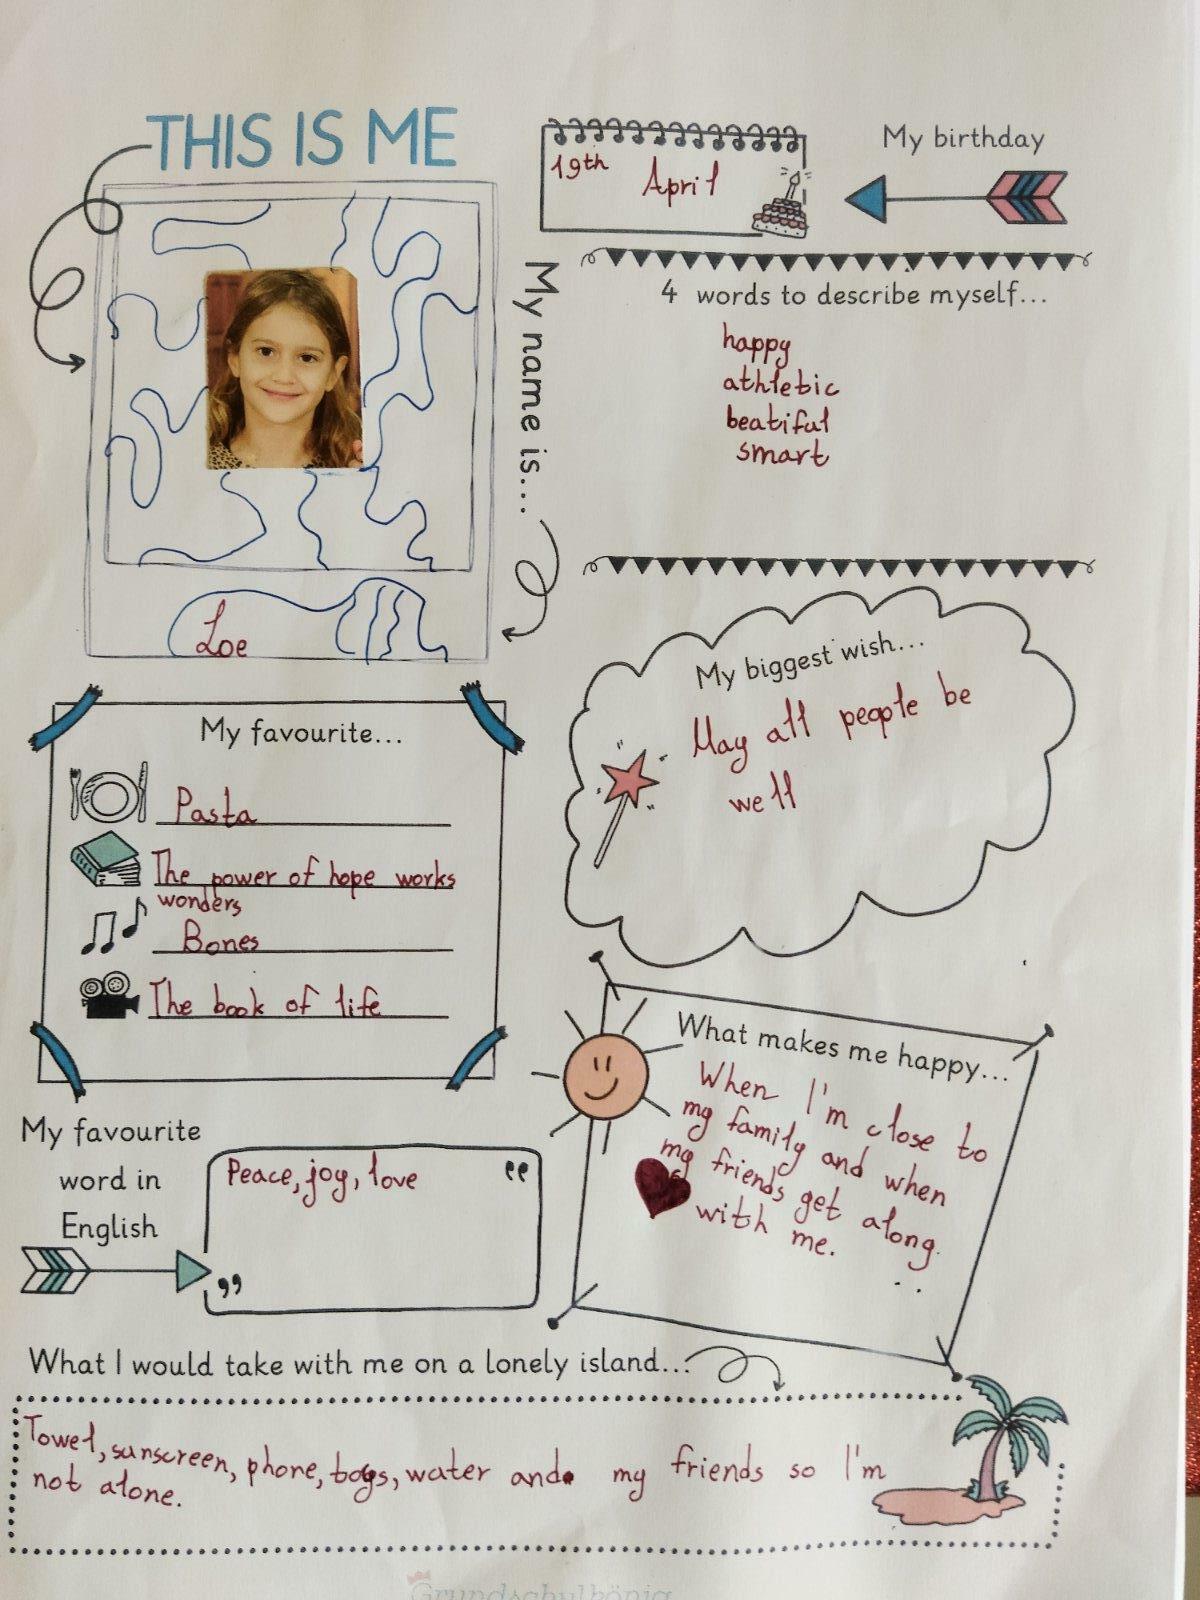 THIS IS ME
19th April
My birthday
4 words to describe myself...
happy
athletic
beatiful
smart
My name is...
Loe
My favourite...
Pasta
The power of hope works
wonders
Bones
The book of life
My biggest wish...
May all people be
well
What makes me happy...
When I'm close to
my family and when
my friends get along
with me.
My favourite
word in
English
Peace, joy, love
What I would take with me on a lonely island...
Towel, sunscreen, phone, bags, water and my friends so I'm
not alone.
Grundschulkönig